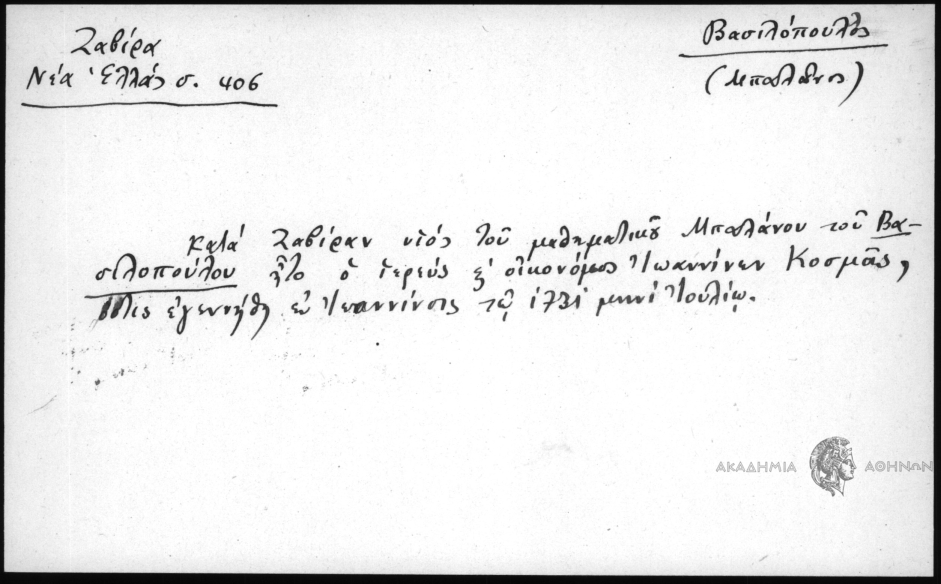 Ζαβίρα
Νέα Ἑλλάς σ. 406
Βασιλόπουλος
(Μπαλάνος)
Κατά Ζαβίραν υἱός τοῦ μαθηματικοῦ Μπαλάνου τοῦ Βα-
σιλοπούλου ἦτο ὁ ἱερεύς & οἰκονόμος Ἰωαννίνων Κοσμᾶς,
ὅστις ἐγεννήθη ἐν Ἰωαννίνοις τῷ 1731 μηνί Ἰουλίῳ.
ΑΚΑΔΗΜΙΑ ΑΘΗΝΩΝ